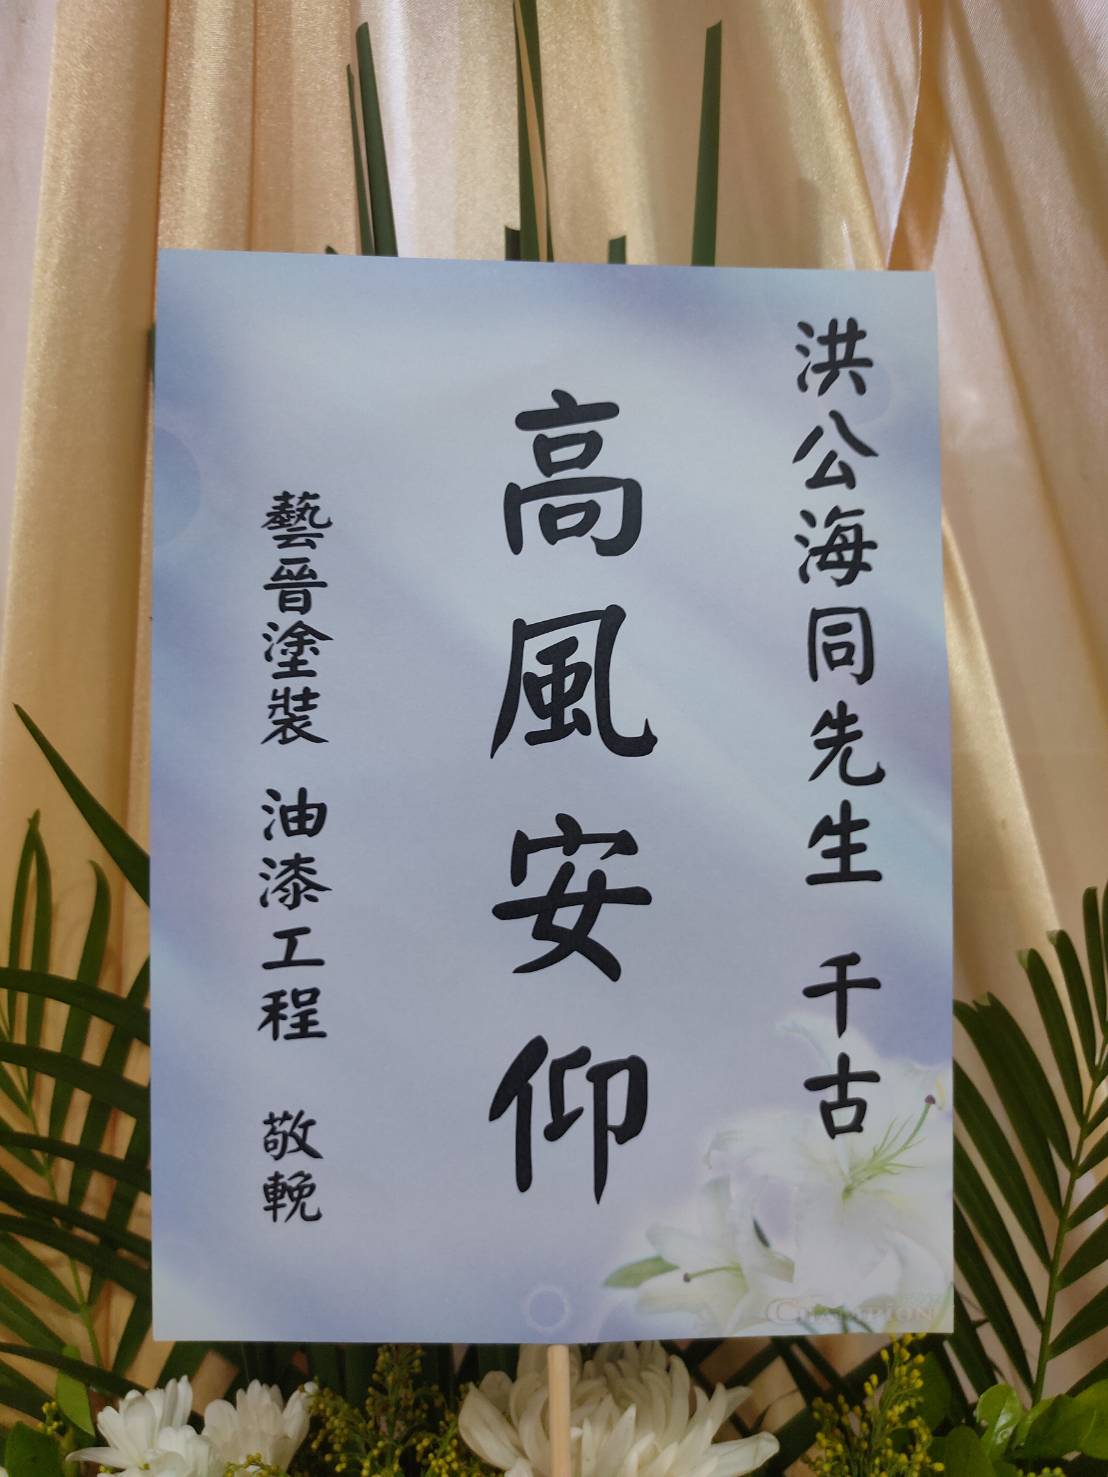 洪公海同先生 千古
高風安仰
藝晉塗裝 油漆工程 敬輓
CHAMPION